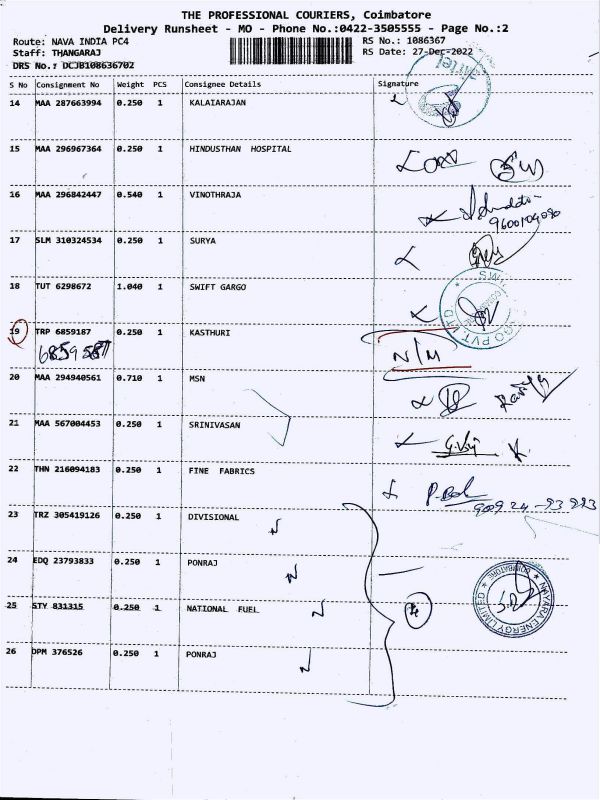 THE PROFESSIONAL COURIERS, Coimbatore
Delivery Runsheet - MO - Phone No.:0422-3505555 - Page No.:2
Route: NAVA INDIA PC4 RS No.: 1086367
Staff: THANGARAJ RS Date: 27-Dec-2022
DRS No.: DCJB108636702
S No Consignment No Weight PCS Consignee Details Signature
14 MAA 287663994 0.250 1 KALAIARAJAN
airtel
15 MAA 296967364 0.250 1 HINDUSTHAN HOSPITAL
16 MAA 296842447 0.540 1 VINOTHRAJA
17 SLM 310324534 0.250 1 SURYA
18 TUT 6298672 1.040 1 SWIFT GARGO
19 TRP 6859187 0.250 1 KASTHURI N/M
20 MAA 294940561 0.710 1 MSN
21 MAA 567004453 0.250 1 SRINIVASAN
22 THN 216094183 0.250 1 FINE FABRICS
23 TRZ 305419126 0.250 1 DIVISIONAL
24 EDQ 23793833 0.250 1 PONRAJ
25 STY 831315 0.250 1 NATIONAL FUEL
NAYARA ENERGY LIMITED
COIMBATORE
26 DPM 376526 0.250 1 PONRAJ